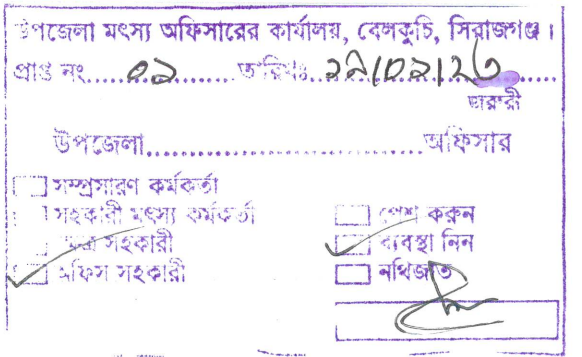 উপজেলা মৎস্য অফিসারের কার্যালয়, বেলকুচি, সিরাজগঞ্জ।
প্রাপ্ত নং.....০৯.....তারিখঃ..
জরুরী
উপজেলা......................অফিসার
সম্প্রসারণ কর্মকর্তা
সহকারী মৎস্য কর্মকর্তা
পেশ করুন
সহকারী
ব্যবস্থা নিন
অফিস সহকারী
নথিজাত